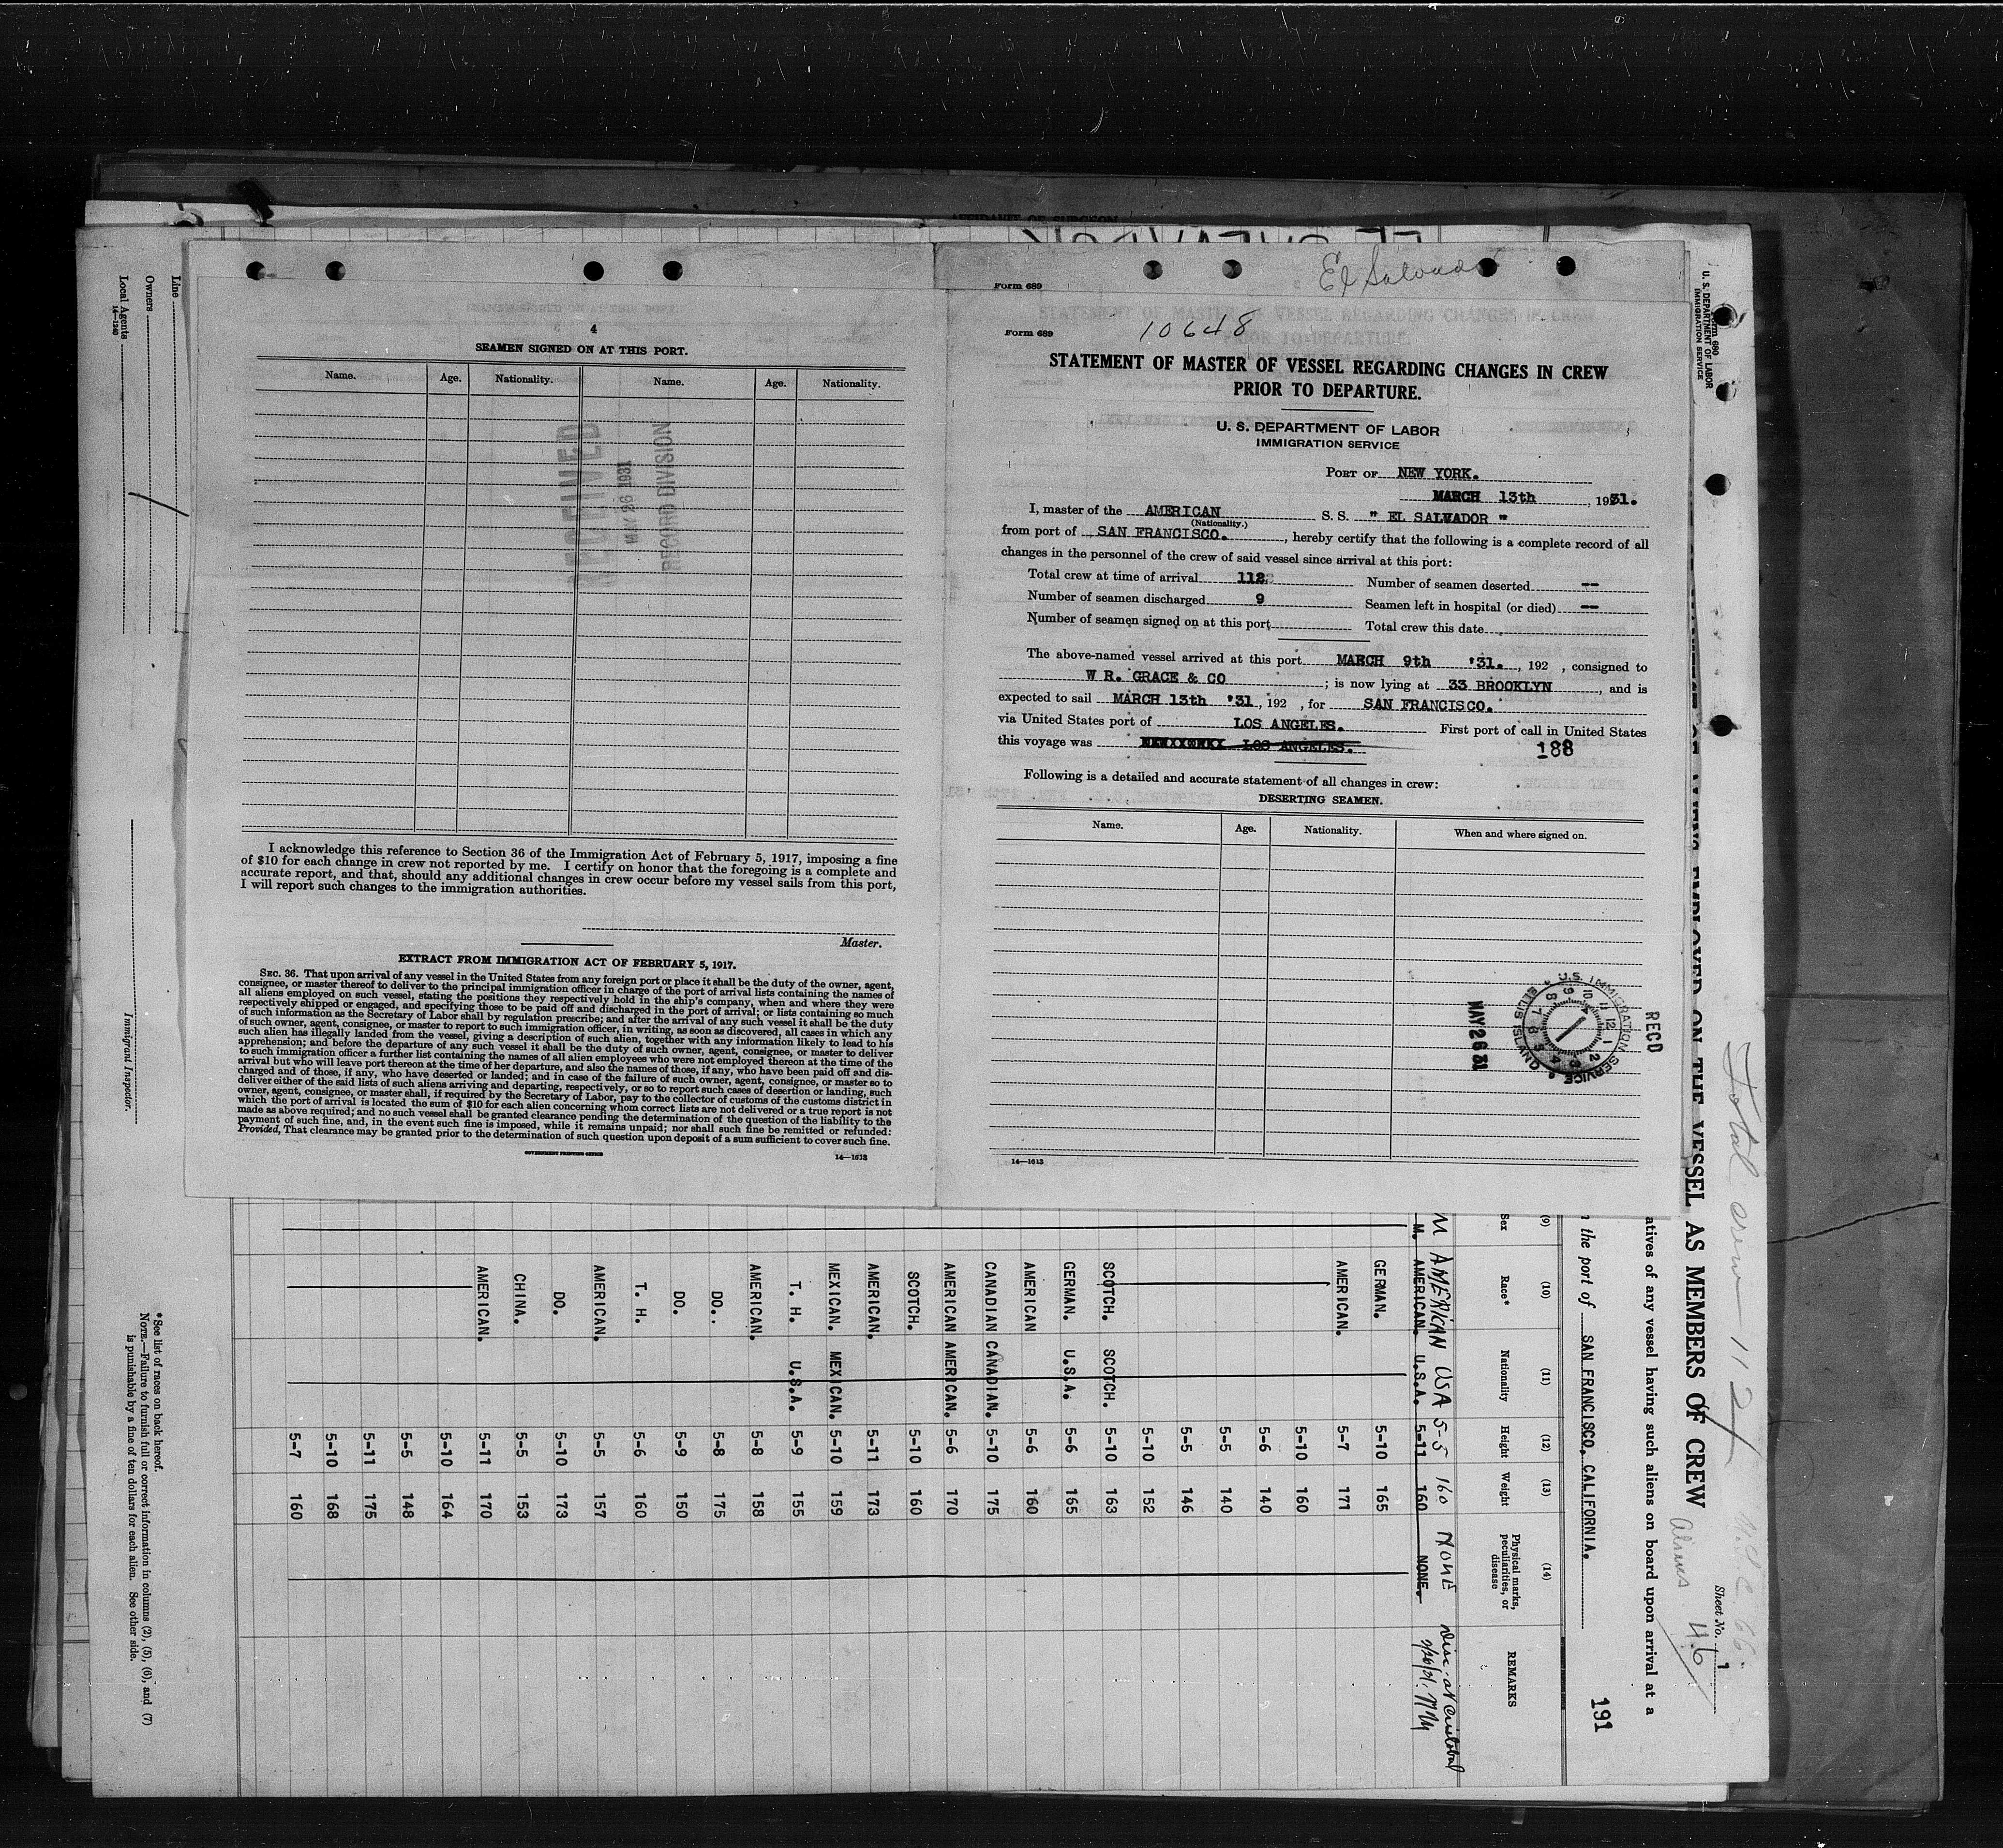 AFFIDAVIT OF SURGEON
4
SEAMEN SIGNED ON AT THIS PORT.
Name. Age. Nationality. Name. Age. Nationality.
RECEIVED
MAY 26 1931
RECORD DIVISION
I acknowledge this reference to Section 36 of the Immigration Act of February 5, 1917, imposing a fine
of $10 for each change in crew not reported by me. I certify on honor that the foregoing is a complete and
accurate report, and that, should any additional changes in crew occur before my vessel sails from this port,
I will report such changes to the immigration authorities.
Master.
EXTRACT FROM IMMIGRATION ACT OF FEBRUARY 5, 1917.
SEC. 36. That upon arrival of any vessel in the United States from any foreign port or place it shall be the duty of the owner, agent,
consignee, or master thereof to deliver to the principal immigration officer in charge of the port of arrival lists containing the names of
all aliens employed on such vessel, stating the positions they respectively hold in the ship's company, when and where they were
respectively shipped or engaged, and specifying those to be paid off and discharged in the port of arrival; or lists containing so much
of such information as the Secretary of Labor shall by regulation prescribe; and after the arrival of any such vessel it shall be the duty
of such owner, agent, consignee, or master to report to such immigration officer, in writing, as soon as discovered, all cases in which any
such alien has illegally landed from the vessel, giving a description of such alien, together with any information likely to lead to his
apprehension; and before the departure of any such vessel it shall be the duty of such owner, agent, consignee, or master to deliver
to such immigration officer a further list containing the names of all alien employees who were not employed thereon at the time of the
arrival but who will leave port thereon at the time of her departure, and also the names of those, if any, who have been paid off and dis-
charged and of those, if any, who have deserted or landed; and in case of the failure of such owner, agent, consignee, or master so to
deliver either of the said lists of such aliens arriving and departing, respectively, or so to report such cases of desertion or landing, such
owner, agent, consignee, or master shall, if required by the Secretary of Labor, pay to the collector of customs of the customs district in
which the port of arrival is located the sum of $10 for each alien concerning whom correct lists are not delivered or a true report is not
made as above required; and no such vessel shall be granted clearance pending the determination of the question of the liability to the
payment of such fine, and, in the event such fine is imposed, while it remains unpaid; nor shall such fine be remitted or refunded:
Provided, That clearance may be granted prior to the determination of such question upon deposit of a sum sufficient to cover such fine.
GOVERNMENT PRINTING OFFICE 14—1613
El Salvador
Form 689
Form 689 10648
STATEMENT OF MASTER OF VESSEL REGARDING CHANGES IN CREW
PRIOR TO DEPARTURE.
U. S. DEPARTMENT OF LABOR
IMMIGRATION SERVICE
PORT OF NEW YORK.
MARCH 13th, 1931.
I, master of the AMERICAN S. S. " EL SALVADOR "
(Nationality.)
from port of SAN FRANCISCO., hereby certify that the following is a complete record of all
changes in the personnel of the crew of said vessel since arrival at this port:
Total crew at time of arrival 112 Number of seamen deserted --
Number of seamen discharged 9 Seamen left in hospital (or died) --
Number of seamen signed on at this port Total crew this date
The above-named vessel arrived at this port MARCH 9th '31., 192 , consigned to
W R. GRACE & CO ; is now lying at 33 BROOKLYN, and is
expected to sail MARCH 13th '31, 192 , for SAN FRANCISCO.
via United States port of LOS ANGELES. First port of call in United States
this voyage was LOS ANGELES.
188
Following is a detailed and accurate statement of all changes in crew:
DESERTING SEAMEN.
Name. Age. Nationality. When and where signed on.
REC'D
U.S. IMMIGRATION SERVICE
ELLIS ISLAND
MAY 26 31
14—1613
Form 680
U. S. DEPARTMENT OF LABOR
IMMIGRATION SERVICE
Total crew 112
U.S.C. 66
Sheet No. 1
EMPLOYED ON THE VESSEL AS MEMBERS OF CREW
Aliens 46
atives of any vessel having such aliens on board upon arrival at a
the port of SAN FRANCISCO, CALIFORNIA.
191
(9) (10) (11) (12) (13) (14)
Sex Race* Nationality Height Weight Physical marks, peculiarities, or disease REMARKS
M AMERICAN USA 5-5 160 NONE Disc. at Cristobal
M. AMERICAN. U.S.A. 5-11 160 NONE.
GERMAN. 5-10 165
AMERICAN. 5-7 171
5-10 160
5-6 140
5-5 140
5-5 146
5-10 152
SCOTCH. SCOTCH. 5-10 163
GERMAN. U.S.A. 5-6 165
AMERICAN 5-6 160
CANADIAN CANADIAN. 5-10 175
AMERICAN AMERICAN. 5-6 170
SCOTCH. 5-10 160
AMERICAN. 5-11 173
MEXICAN. MEXICAN. 5-10 159
T. H. U.S.A. 5-9 155
AMERICAN. 5-8 158
DO. 5-8 175
DO. 5-9 150
T. H. 5-6 160
AMERICAN. 5-5 157
DO. 5-10 173
CHINA. 5-5 153
AMERICAN. 5-11 170
5-10 164
5-5 148
5-11 175
5-10 168
5-7 160
Line
Owners
Local Agents
14—1240
Immigrant Inspector.
*See list of races on back hereof.
NOTE.—Failure to furnish full or correct information in columns (2), (5), (6), and (7)
is punishable by a fine of ten dollars for each alien. See other side.